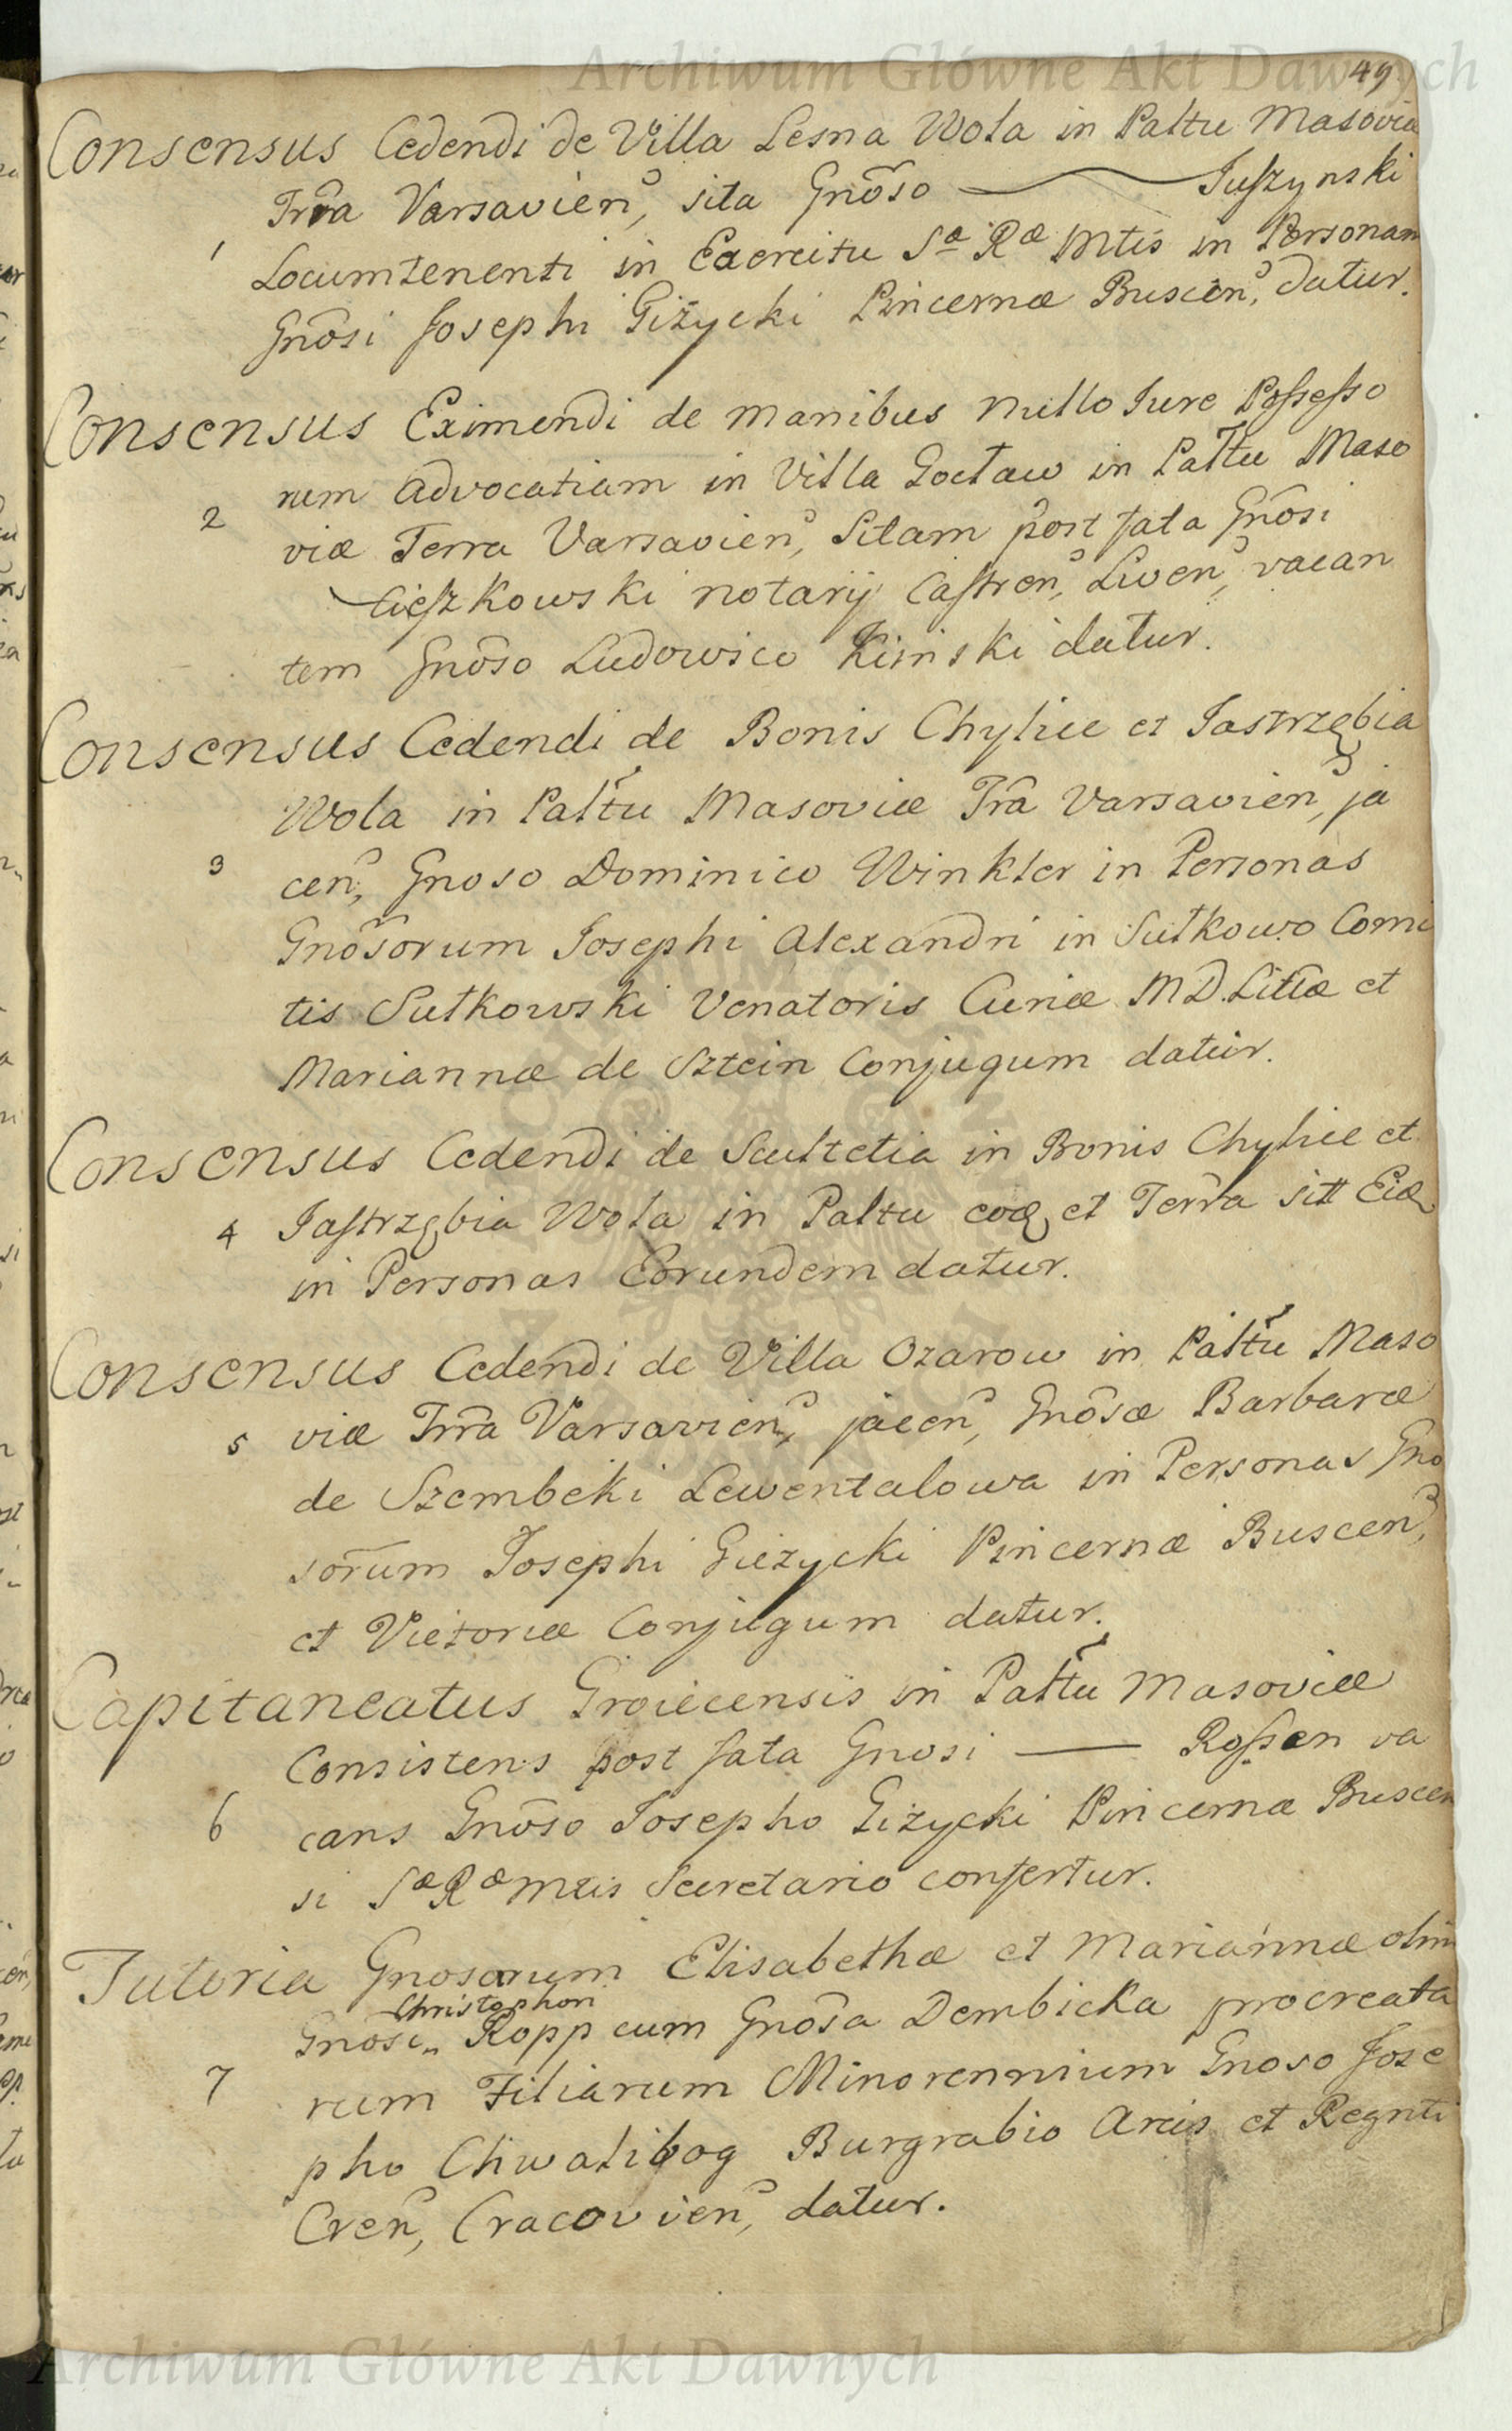 Archiwum Główne Akt Dawnych
49
Consensus Cedendi de Villa Lesna Wola in Paltu Masovia
Trra Varsavien, sita Gnõso — Juszynski
1
Locumtenenti in Exercitu Sæ Ræ Mtis in Personam
Gnõsi Josephi Giżycki Pincernæ Buscen, datur.
Consensus Eximendi de manibus nullo Jure Possesso
rum Advocatiam in Villa Gocław in Paltu Maso
2
viæ Terra Varsavien, Sitam post fata Gnõsi
Cieszkowski notarij Castren, Liven, vacan
tem Gnõso Ludowico Kinski datur.
Consensus Cedendi de Bonis Chylice et Jastrzębia
Wola in Paltu Masoviæ Tra Varsavien, ja
3
cen, Gnoso Dominico Winkler in Personas
Gnõsorum Josephi Alexandri in Sułkowo Comi
tis Sułkowski Venatoris Curiæ M.D. Littiæ et
Mariannæ de Sztein Conjugum datur.
Consensus Cedendi de Scultetia in Bonis Chylice et
4 Jastrzębia Wola in Paltu eoq et Terra sitt Eidæ
in Personas Eorundem datur.
Consensus Cedendi de Villa Ozarow in Paltu Maso
5 viæ Trra Varsavien, jacen, Gnõsæ Barbaræ
de Szembeki Lewentalowa in Personas Gno
sorum Josephi Gieżycki Pincernæ Buscen,
et Victoriæ Conjugum datur.
Capitaneatus Groiecensis in Paltu Masoviæ
Consistens post fata Gnosi — Rossen va
6 cans Gnõso Josepho Giżycki Pincernæ Buscen
si Sæ Ræ Mtis Secretario confertur.
Tutoria Gnosarum Elisabethæ et Mariannæ olim
Christophori
Gnõsi Ropp cum Gnõsa Dembicka procreata
7 rum Filiarum Minorennium Gnoso Jose
pho Chwalibog Burgrabio Arcis et Regnti
Cren, Cracovien, datur.
Archiwum Główne Akt Dawnych